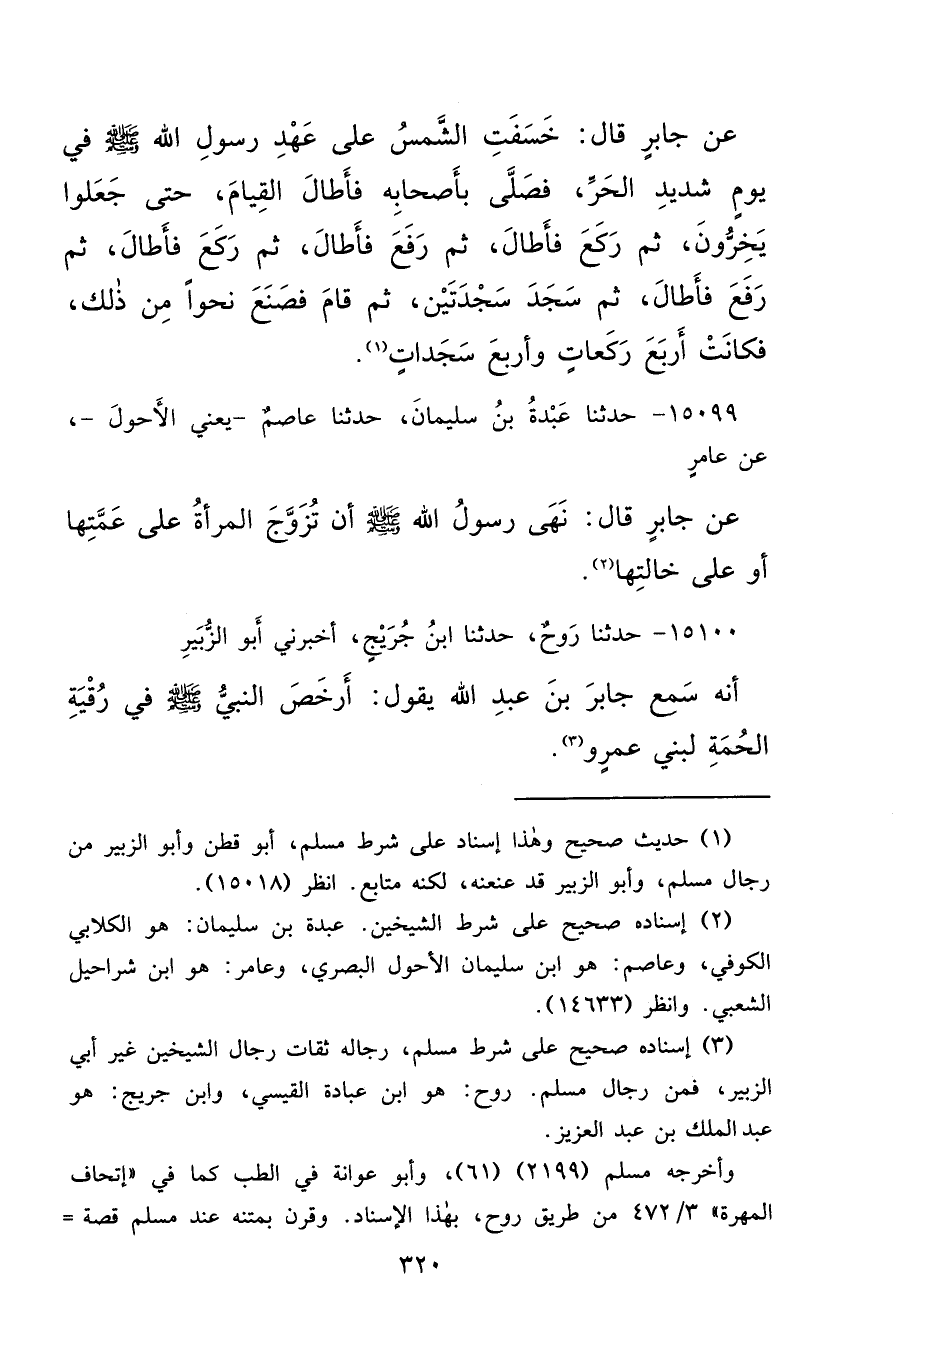 عن جابرٍ قال: خَسَفَتِ الشَّمسُ على عَهْدِ رسولِ الله ﷺ في
يومٍ شديدِ الحَرِّ، فصَلَّى بأَصحابِه فأَطالَ القِيامَ، حتى جَعَلوا
يَخِرُّونَ، ثم رَكَعَ فأَطالَ، ثم رَفَعَ فأَطالَ، ثم رَكَعَ فأَطالَ، ثم
رَفَعَ فأَطالَ، ثم سَجَدَ سَجْدَتَيْن، ثم قامَ فصَنَعَ نحواً مِن ذٰلك،
فكانَتْ أَربَعَ رَكَعاتٍ وأربعَ سَجَداتٍ(١).
١٥٠٩٩- حدثنا عَبْدةُ بنُ سليمانَ، حدثنا عاصمٌ -يعني الأَحولَ -،
عن عامرٍ
عن جابرٍ قال: نَهَى رسولُ الله ﷺ أن تُزَوَّجَ المرأةُ على عَمَّتِها
أو على خالتِها(٢).
١٥١٠٠- حدثنا رَوحٌ، حدثنا ابنُ جُرَيْجٍ، أخبرني أَبو الزُّبَيرِ
أنه سَمِع جابرَ بنَ عبدِ الله يقول: أَرخَصَ النبيُّ ﷺ في رُقْيَةِ
الحُمَةِ لبني عمرٍو(٣).
(١) حديث صحيح وهٰذا إسناد على شرط مسلم، أبو قطن وأبو الزبير من
رجال مسلم، وأبو الزبير قد عنعنه، لكنه متابع. انظر (١٥٠١٨).
(٢) إسناده صحيح على شرط الشيخين. عبدة بن سليمان: هو الكلابي
الكوفي، وعاصم: هو ابن سليمان الأحول البصري، وعامر: هو ابن شراحيل
الشعبي. وانظر (١٤٦٣٣).
(٣) إسناده صحيح على شرط مسلم، رجاله ثقات رجال الشيخين غير أبي
الزبير، فمن رجال مسلم. روح: هو ابن عبادة القيسي، وابن جريج: هو
عبد الملك بن عبد العزيز.
وأخرجه مسلم (٢١٩٩) (٦١)، وأبو عوانة في الطب كما في «إتحاف
المهرة» ٣/ ٤٧٢ من طريق روح، بهٰذا الإسناد. وقرن بمتنه عند مسلم قصة =
٣٢٠